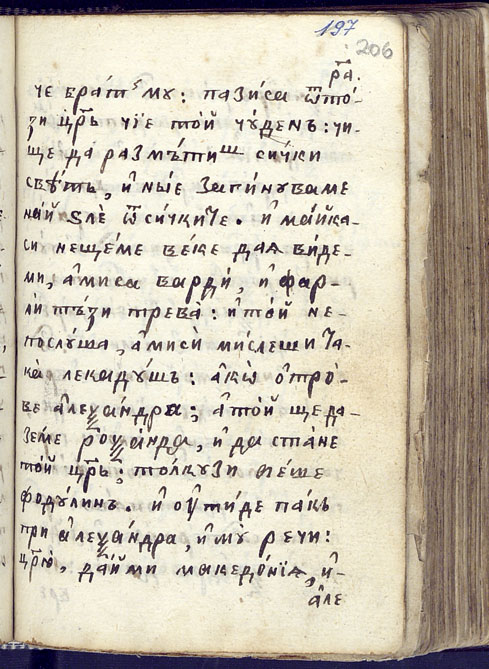 197
206
р҃а.
че брат҆ му: пази́са ѿто́-
зи цр҃ь чїе то́й чꙋ́денъ: чи-
ще да размѣ́тиш си́чки
свѣ́тъ, и҆ ны́е загинꙋваме
на́й ѕлѐ ѿ си́чките. и҆ ма́йка-
си нещѐме ве́ке даꙗ ви́де-
ми, а҆миса варди́, и҆ фар-
ли тъ́зи трева̀: и҆ то́й не-
послꙋ́ша, а҆миси мислеши та-
ка̀ лекадꙋ́шъ: а҆кѡ ѻ҆тро́-
ве а҆леѯа́ндра; а҆ то́й щеда-
зѐме роѯа́нда, и҆ да ста́не
то́й цр҃ь; то́лкꙋзи бе́ше
фодꙋ́линъ. и҆ ѹ҆ти́де па́къ
при а҆леѯа́ндра, и҆ мꙋ̀ речѝ:
цр҃ю̀, да́йми македо́нїꙗ, и҆-
а҆ле